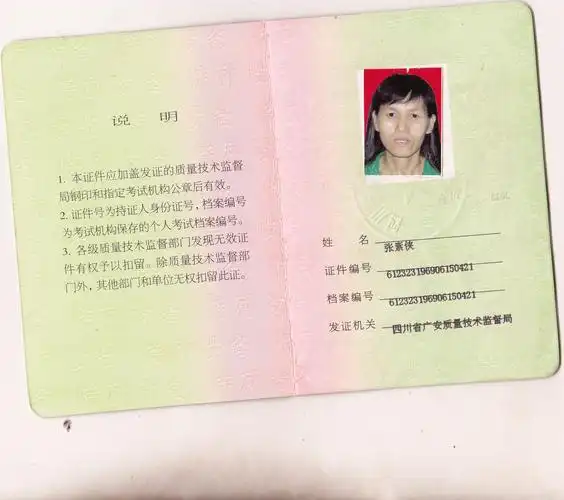 说 明
1. 本证件应加盖发证的质量技术监督
局钢印和指定考试机构公章后有效。
2. 证件号为持证人身份证号，档案编号
为考试机构保存的个人考试档案编号。
3. 各级质量技术监督部门发现无效证
件有权予以扣留。除质量技术监督部
门外，其他部门和单位无权扣留此证。
姓 名 张素侠
证件编号 612323196906150421
档案编号 612323196906150421
发证机关 四川省广安质量技术监督局